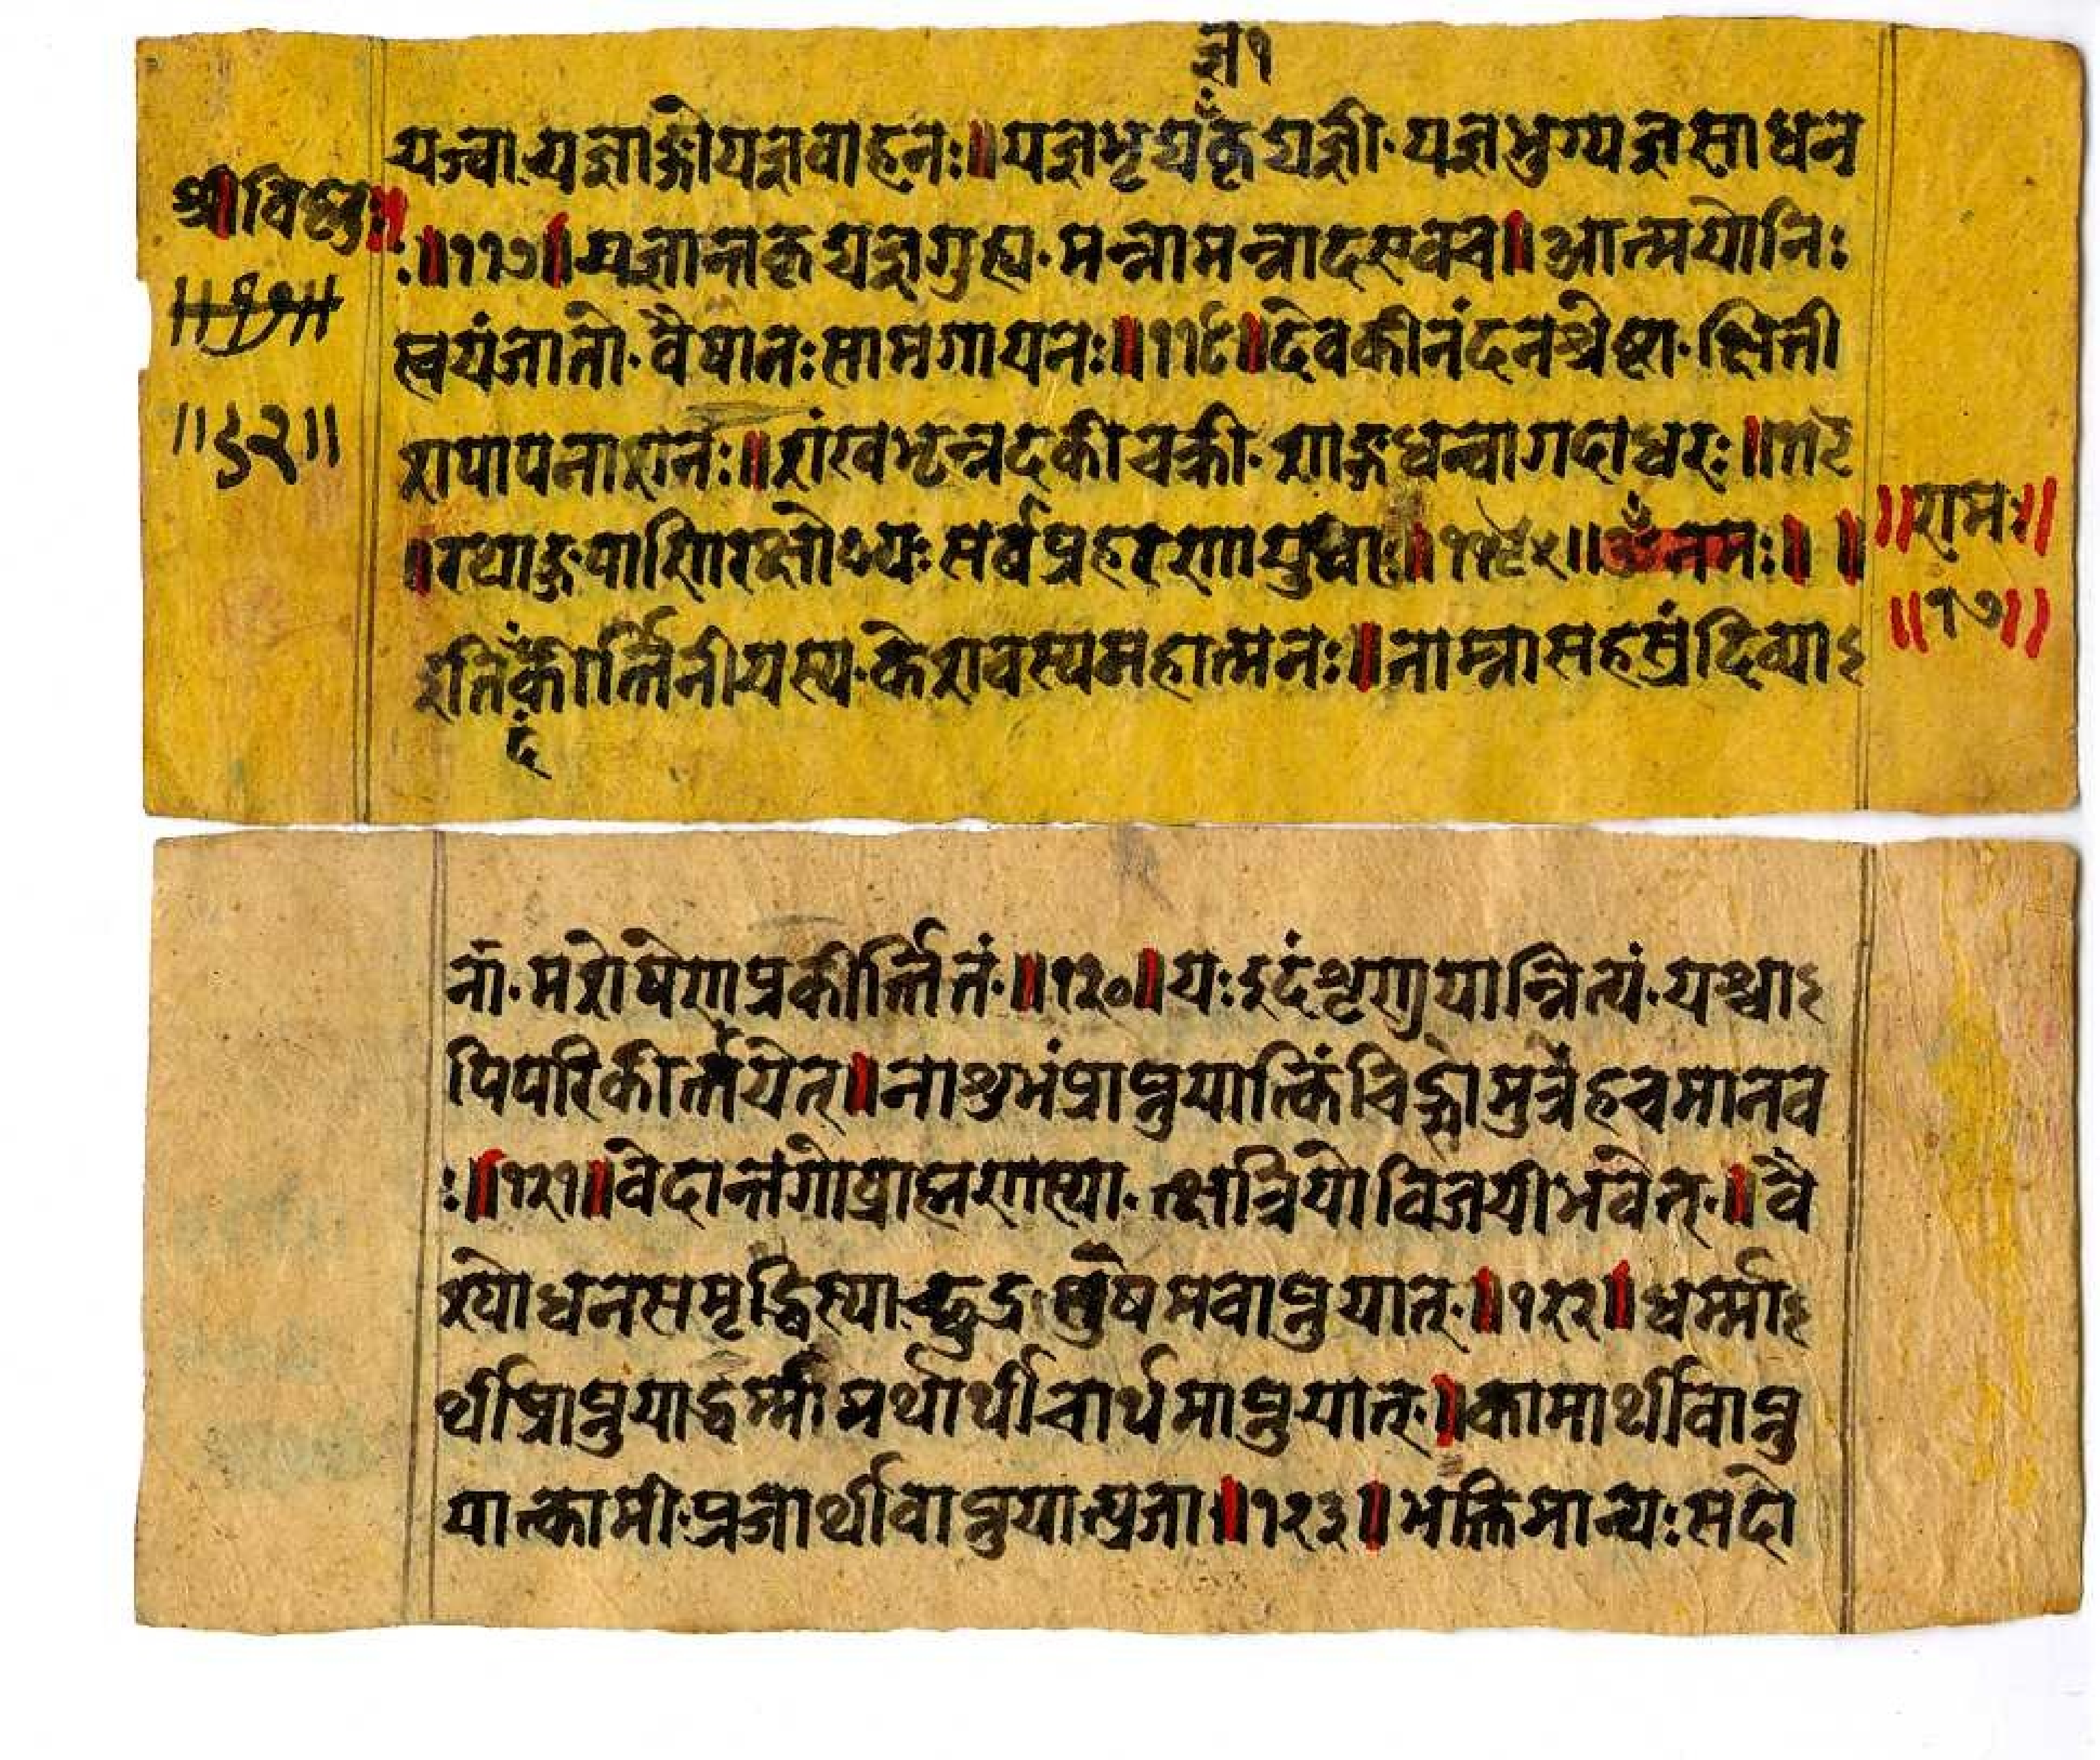 ज्ञ १
यज्वा यज्ञाङ्गोयज्ञवाहनः॥यज्ञभृद्यकृद्यज्ञी·यज्ञभुग्यज्ञसाधन
श्रीविष्णुः॥
ः॥११७॥यज्ञान्तकृद्यज्ञगुह्य·मन्नामन्नादएवच॥आत्मयोनिः
॥१७॥
स्वयंजातो·वैषानःसामगायनः॥११८॥देवकीनंदनश्रेष्टा·क्षिती
॥६२॥
शपापनाशनः॥शंखभृन्नदकीचक्री·शाङ्गधन्वागदाधरः॥११९
॥रामः॥
॥रथाङ्गपाणिरक्षोभ्यः सर्वप्रहरणायुधाः॥ ॥ॐनमः॥ ॥
॥१७॥
इतिकीर्त्तिनीयस्य·केशवस्यमहात्मनः॥नाम्नासहस्रंदिव्याऽ
दं
नां·मशेषेणप्रकीर्त्तितं·॥१२०॥यःइदंशृणुयान्नित्यं·यश्चाऽ
पिपरिकीर्त्तयेत्॥नाशुभंप्राप्नुयात्किंचिद्सोमुत्रेहचमानव
ः॥१२१॥वेदान्तगोब्राह्मणस्या·त्क्षत्रियोविजयीभवेत्·॥वै
श्योधनसमृद्धिस्या·च्छुद्र सुषमवाप्नुयात्·॥१२२॥धर्म्माऽ
र्थीप्राप्नुयाद्धर्म्म मर्थार्थीचार्थमाप्नुयात्·॥कामार्थीवाप्नु
यात्कामी·प्रजार्थीवाप्नुयात्प्रजा॥१२३॥भक्तिमान्यःसदो